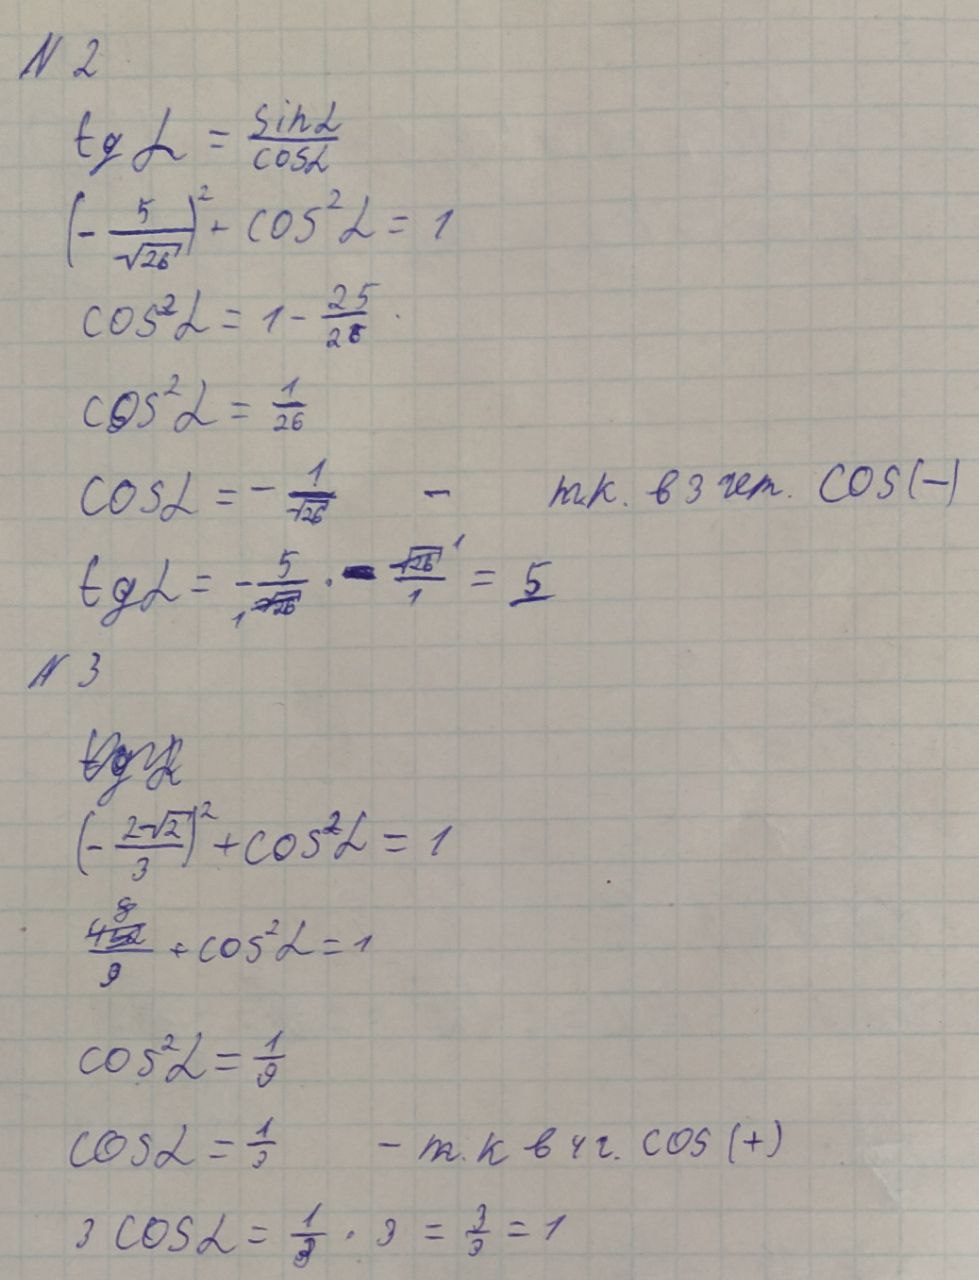 N 2
tg α = sin α / cos α
(- 5/√26)² + cos²α = 1
cos²α = 1 - 25/26
cos²α = 1/26
cos α = - 1/√26 - т.к. в 3 чет. cos (-)
tg α = - 5/√26 · - √26/1 = 5
N 3
(- 2√2/3)² + cos²α = 1
8/9 + cos²α = 1
cos²α = 1/9
cos α = 1/3 - т.к в 4 ч. cos (+)
3 cos α = 1/3 · 3 = 3/3 = 1